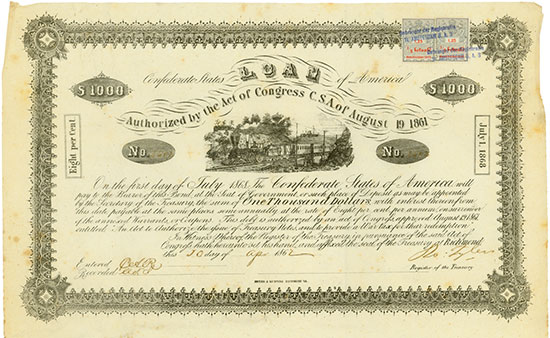 LOAN
Confederate States of America
$1000 $1000
Authorized by the Act of Congress C.S.A. of August 19 1861
No. No.
Eight per Cent
July 1, 1868
On the first day of July 1868 The Confederate States of America will
pay to the Bearer of this Bond, at the seat of Government, or such place of Deposit as may be appointed
by the Secretary of the Treasury, the sum of One Thousand Dollars, with interest thereon from
this date, payable at the same places semi annually at the rate of Eight per cent per annum, on surrender
of the annexed Coupons. This debt is authorized by an act of Congress, approved August 19 1861,
entitled An Act to Authorize the Issue of Treasury Notes, and to provide a War tax for their redemption
In Witness Whereof the Register of the Treasury in pursuance of the said Act of
Congress hath hereunto set his hand, and affixed the seal of the Treasury at Richmond
this 10 day of Apr 1862
Entered
Recorded
Register of the Treasury